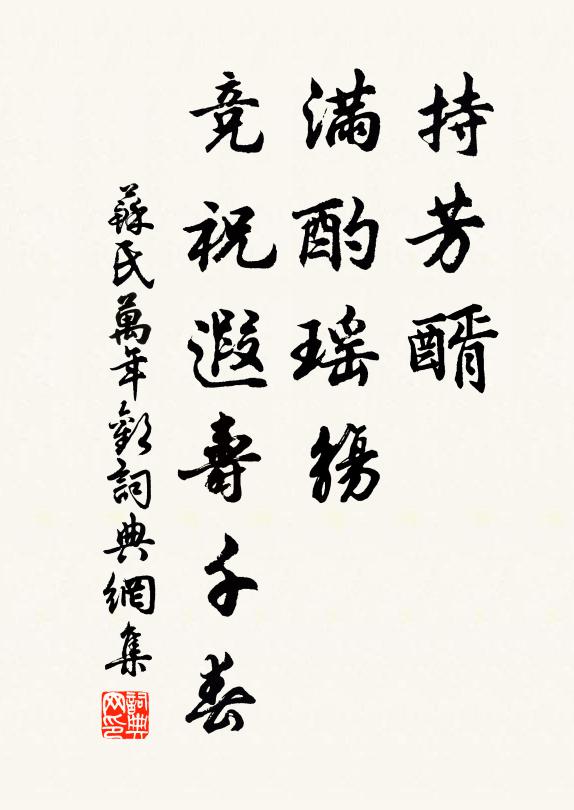 持芳醑
滿酌瑤觴
竞祝遐壽千春
蘇氏萬年歡詞典網集
詞典网印